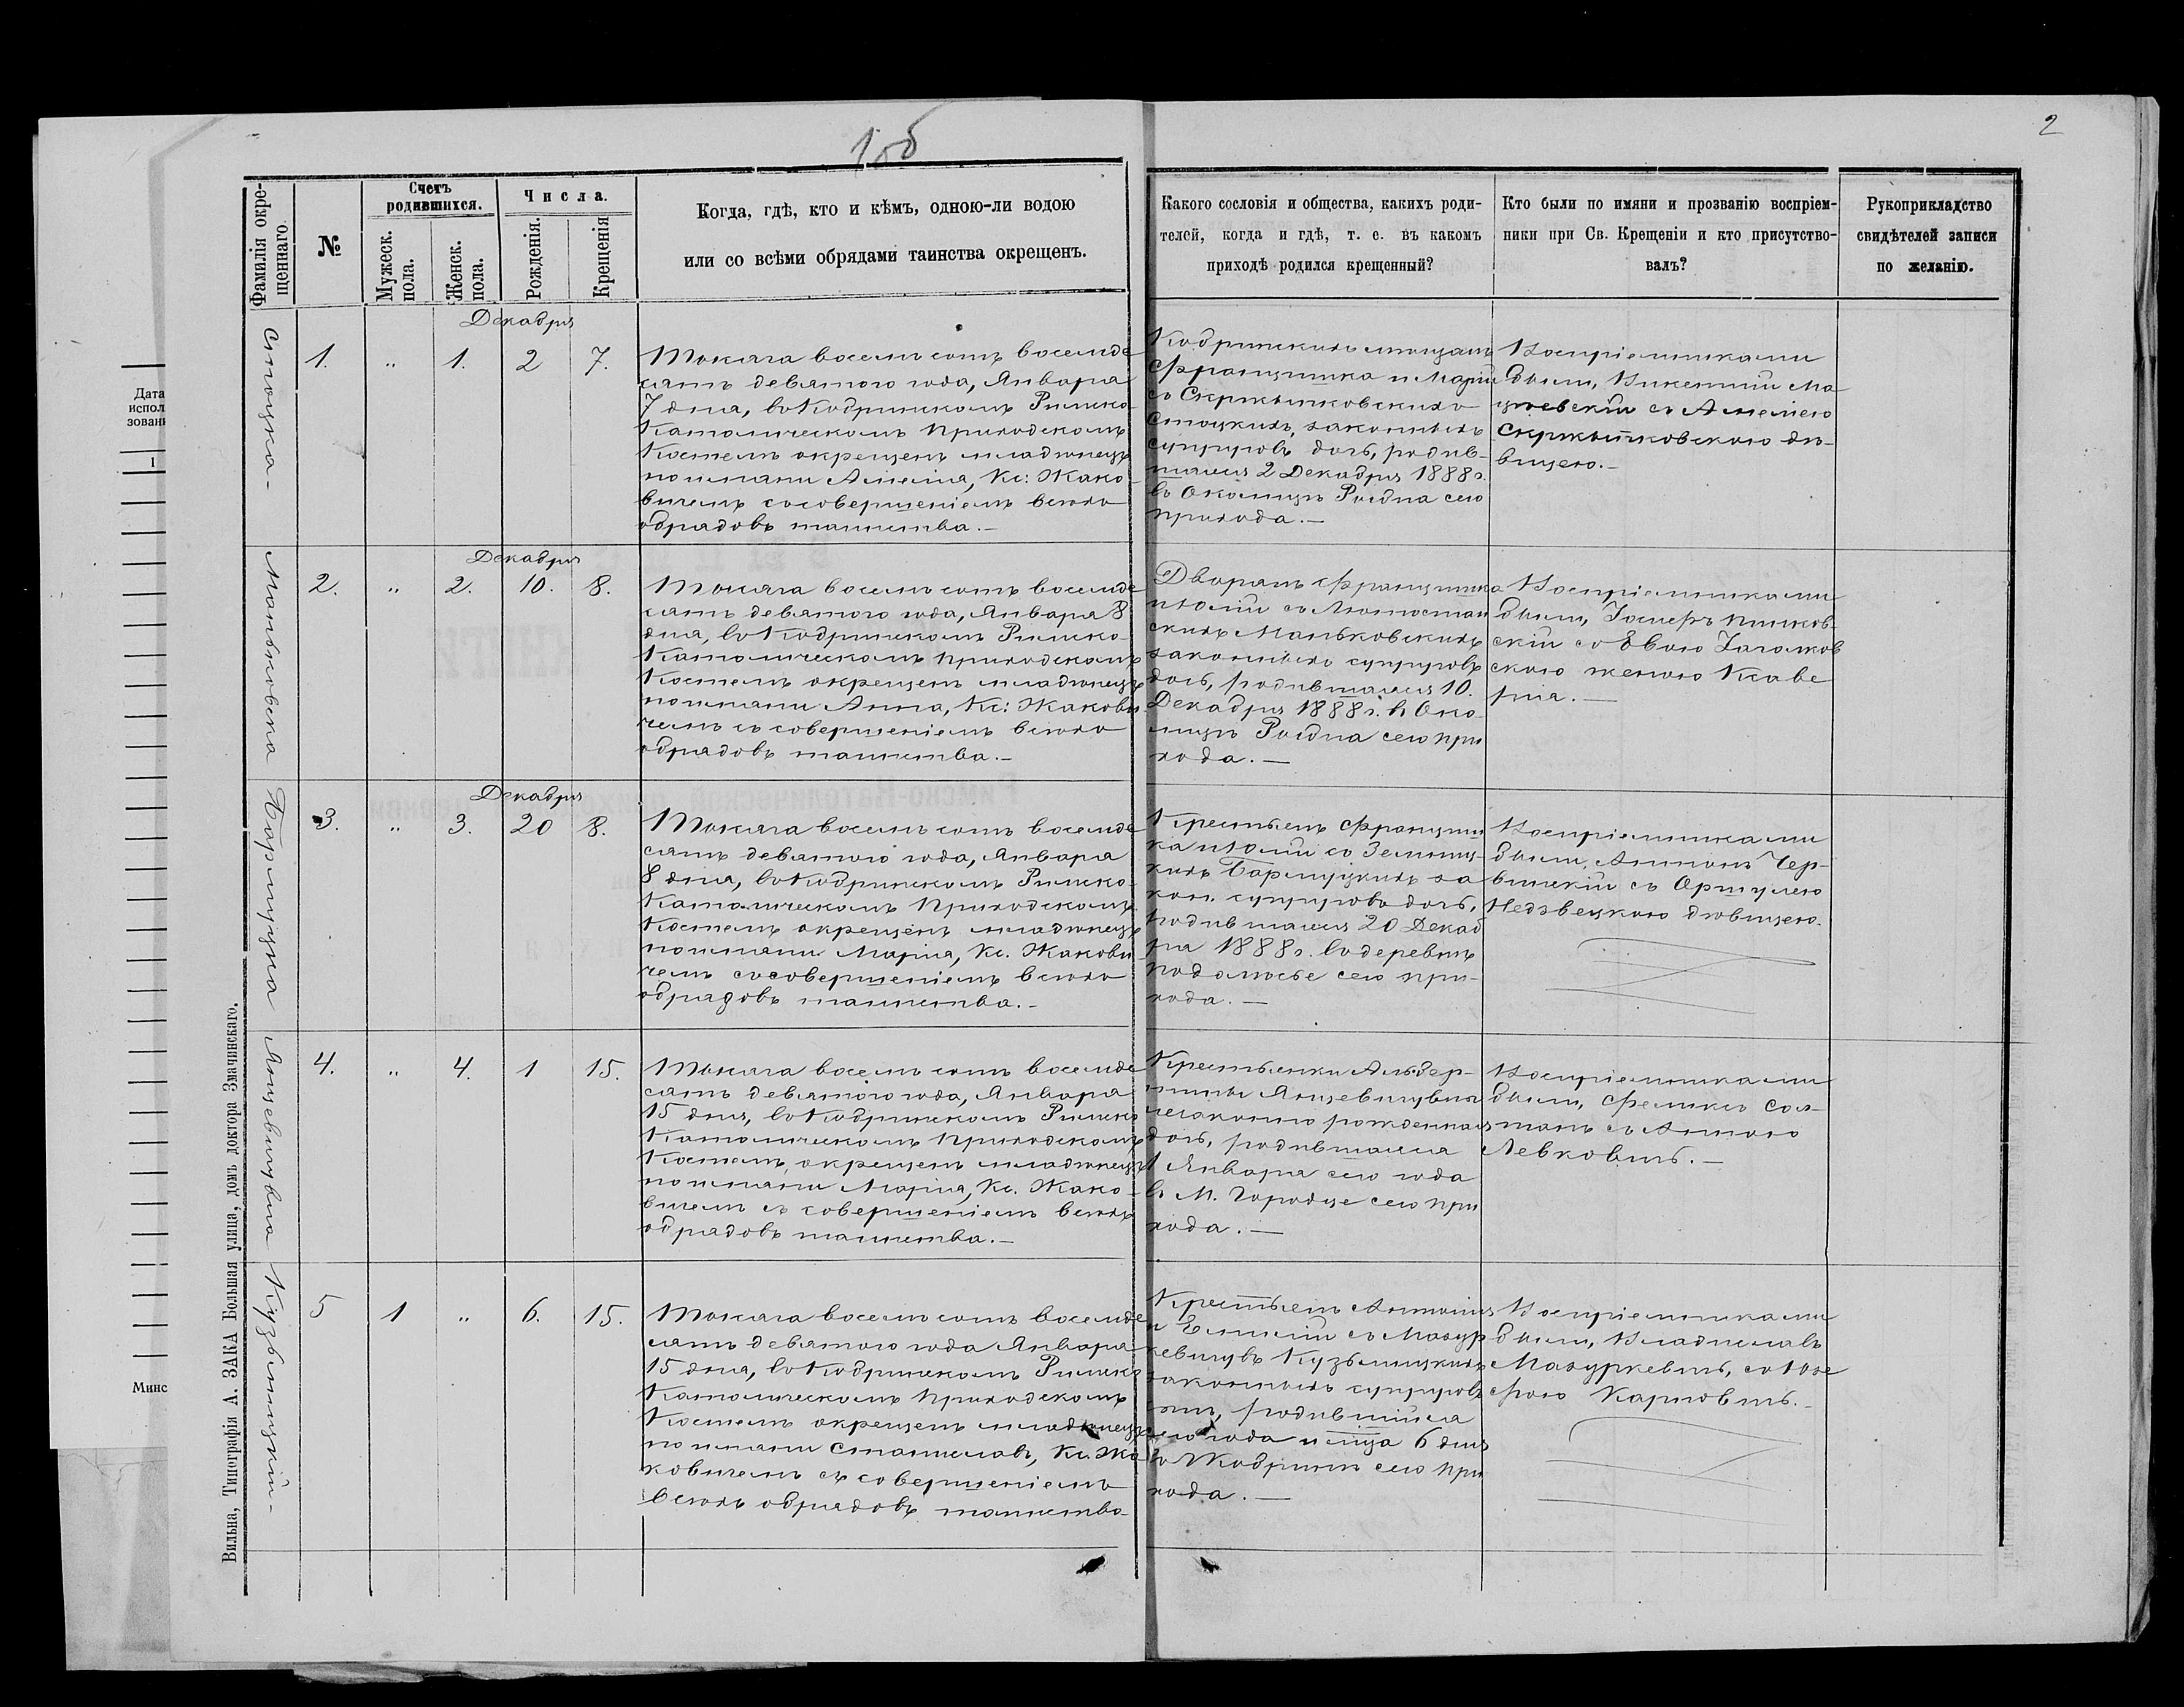 155
2
Дата
испол
зовані
1
Минс
Вильна, Типографія А. ЗАКА Большая улица, домъ доктора Змачинскаго.
Фамилія окре-
щеннаго.
№
Счетъ
родившихся.
Мужеск.
пола.
Женск.
пола.
Числа.
Рожденія.
Крещенія
Когда, гдѣ, кто и кѣмъ, одною-ли водою
или со всѣми обрядами таинства окрещенъ.
Какого сословія и общества, какихъ роди-
телей, когда и гдѣ, т. е. въ какомъ
приходѣ родился крещенный?
Кто были по имяни и прозванію воспріем-
ники при Св. Крещеніи и кто присутство-
валъ?
Рукоприкладство
свидѣтелей записи
по желанію.
Стоцка-
Декабря
1. " 1. 2 7.
Тысяча восемь сотъ восемде
сятъ девятого года, Января
7 дня, въ Кобринскомъ Римско-
Католическомъ Приходскомъ
Костелѣ окрещенъ младѣнецъ
по имяни Амелія, Кс: Жако-
вичемъ со совершеніемъ всѣхъ
обрядовъ таинства.-
Кобринскихъ мѣщанъ
Францишка и Маріи
съ
Стоцкихъ, законныхъ
супруговъ дочь, родив-
шаяся 2 Декабря 1888 г.
въ Околицѣ Рыбна сего
прихода.-
Воспріемниками
были, Викентій Ма
цѣевскій съ Амеліею
дѣ-
вицею.-
Маньковска
Декабря
2. " 2. 10. 8.
Тысяча восемь сотъ восемде
сятъ девятого года, Января 8
дня, въ Кобринскомъ Римско-
Католическомъ Приходскомъ
Костелѣ окрещенъ младѣнецъ
по имяни Анна, Кс: Жакови
чемъ съ совершеніемъ всѣхъ
обрядовъ таинства.-
Дворянъ Францишка
и Юліи съ Лютостан
скихъ Маньковскихъ
законныхъ супруговъ
дочь, родившаяся 10.
Декабря 1888 г. въ Око-
лицѣ Рыбна сего при
хода.-
Воспріемниками
были,
скій со Евою
скою женою Ксаве
рія.-
Бармуцка
Декабря
3. " 3. 20 8.
Тысяча восемь сотъ восемде
сятъ девятого года, Января
8 дня, въ Кобринскомъ Римско-
Католическомъ Приходскомъ
Костелѣ окрещенъ младѣнецъ
по имяни Марія, Кс. Жакови
чемъ со совершеніемъ всѣхъ
обрядовъ таинства.-
Крестьянъ Францишъ
ка и Юліи со
кихъ Бармуцкихъ за
кон. супруговъ дочь,
родившаяся 20 Декаб
ря 1888 г. въ деревнѣ
Подолѣсье сего при-
хода.-
Воспріемниками
были, Антонъ Чер-
винскій съ Оршулею
Недзвецкою дѣвицею.
Янцевичувна
4. " 4. 1 15.
Тысяча восемь сотъ восемде
сятъ девятого года, Января
15 дня, въ Кобринскомъ Римско
Католическомъ Приходскомъ
Костелѣ, окрещенъ младѣнецъ
по имяни Марія, Кс. Жако-
вичемъ съ совершеніемъ всѣхъ
обрядовъ таинства.-
Крестьянки Альбер-
тины Янцевичувны
незаконно рожденная
дочь, родившаяся
1 Января сего года
въ М. Городце сего при
хода.-
Воспріемниками
были, Феликсъ Сол-
танъ съ Анною
Левковичъ.-
Кузьмицкій-
5 1 " 6. 15.
Тысяча восемь сотъ восемде
сятъ девятого года Января
15 дня, въ Кобринскомъ Римско
Католическомъ Приходскомъ
Костелѣ окрещенъ младѣнецъ
по имяни Станиславъ, Кс. Жа
ковичемъ съ совершеніемъ
всѣхъ обрядовъ таинства
Крестьянъ Антонія
и Емиліи съ Мазур
кевичувъ Кузьмицкихъ
законныхъ супруговъ
сынъ, родившійся
сего года и м-ца 6 дня
въ Кобринѣ сего при
хода.-
Воспріемниками
были, Владиславъ
Мазуркевичъ, со Юзе
фою Карповичъ.-